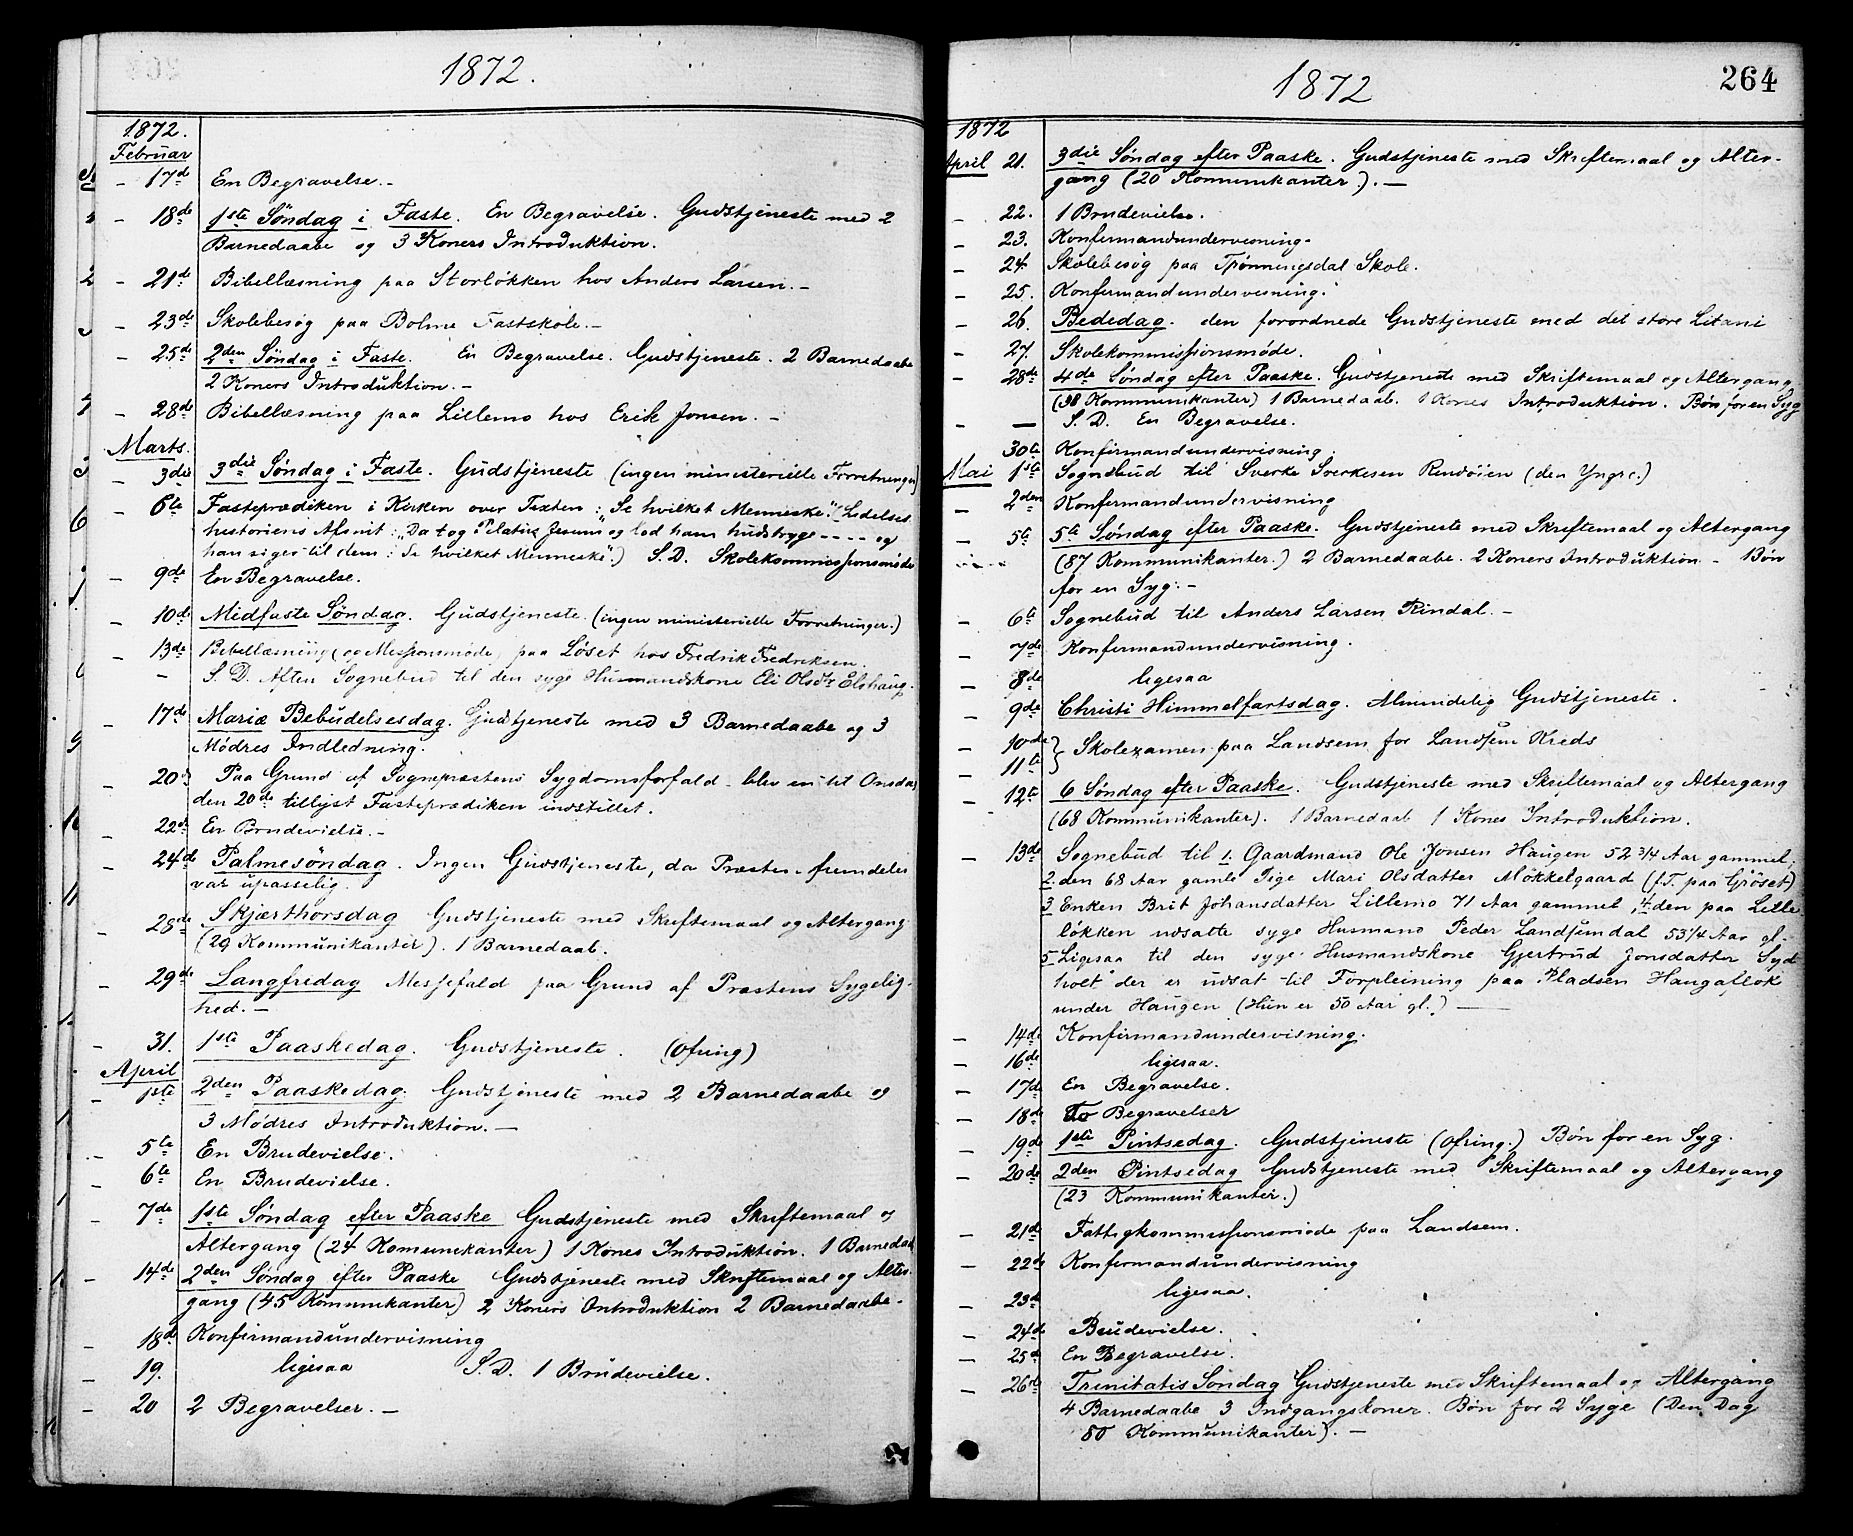 1872.
1872.
Februar
- 17de En Begravelse. -
- 18de 1ste Søndag i Faste. En Begravelse. Gudstjeneste med 2
Barnedaabe og 3 Koners Introduktion.
- 21de Bibellæsning paa Storløkken hos Anders Larsen. -
- 23de Skolebesøg paa Bolme Fastskole. -
- 25de 2den Søndag i Faste. En Begravelse. Gudstjeneste. 2 Barnedaabe
2 Koners Introduktion. -
- 28de Bibellæsning paa Lillemo hos Erik Jonsen. -
Marts.
- 3die 3die Søndag i Faste. Gudstjeneste (ingen ministerielle Forretninger)
- 6te Fasteprædiken i Kirken over Texten: "Se hvilket Menneske." Lidelses
historiens Afsnit: "Da tog Pilatus Jesum og lod ham hudstryge ---- og
han siger til dem: Se hvilket Menneske".) S.D. Skolekommissionsmøde
- 9de En Begravelse.
- 10de Midfaste Søndag. Gudstjeneste. (ingen ministerielle Forretninger.)
- 13de Bibellæsning (og Missionsmøde) paa Løset hos Fredrik Fredriksen.
- S.D. Aften Sognebud til den syge Husmandskone Eli Olsdtr Elshaug.
- 17de Mariæ Bebudelsesdag. Gudstjeneste med 3 Barnedaabe og 3
Mødres Indledning.
- 20de Paa Grund af Sognepræstens Sygdomsforfald blev en til Onsdag
den 20de tillyst Fasteprædiken indstillet.
- 22de En Brudevielse. -
- 24de Palmesøndag. Ingen Gudstjeneste, da Præsten fremdeles
var upasselig.
- 28de Skjærthorsdag Gudstjeneste med Skriftemaal og Altergang
(29 Kommunikanter). 1 Barnedaab.
- 29de Langfredag Messefald paa Grund af Præstens Sygelig-
hed. -
- 31. 1ste Paaskedag. Gudstjeneste. (Ofring)
April
- 1ste 2den Paaskedag. Gudstjeneste med 2 Barnedaabe og
3 Mødres Introduktion. -
- 5te En Brudevielse.
- 6te En Brudevielse.
- 7de 1ste Søndag efter Paaske Gudstjeneste med Skriftemaal og
Altergang (24 Komunikanter) 1 Kones Introduktion. 1 Barnedaab
- 14de 2den Søndag efter Paaske Gudstjeneste med Skriftemaal og Alter-
gang (45 Kommunikanter) 2 Koners Introduktion 2 Barnedaabe -
- 18de Konfirmandundervisning
- 19. ligesaa S.D. 1 Brudevielse.
- 20 2 Begravelser. -
1872
264
1872
April 21. 3die Søndag efter Paaske. Gudstjeneste med Skriftemaal og Alter-
gang (20 Kommunikanter). -
- 22. 1 Brudevielse.
- 23. Konfirmandundervisning.
- 24. Skolebesøg paa Trønningsdal Skole.
- 25. Konfirmandundervisning.
- 26. Bededag. den forordnede Gudstjeneste med det store Litani
- 27. Skolekommissionsmøde.
- 28de 4de Søndag efter Paaske. Gudstjeneste med Skriftemaal og Altergang
(38 Kommunikanter) 1 Barnedaab. 1 Kones Introduktion. Bøn for en Syg
- - S.D. En Begravelse.
30te Konfirmandundervisning
Mai 1ste Sognebud til Sverke Sverkesen Rindøien (den Yngre.)
- 2den Konfirmandundervisning
- 5te 5te Søndag efter Paaske. Gudstjeneste med Skriftemaal og Altergang
(87 Kommunikanter.) 2 Barnedaabe. 2 Koners Introduktion - Bøn
for en Syg. -
- 6te Sognebud til Anders Larsen Rindal. -
- 7de Konfirmandundervisning.
- 8de ligesaa
- 9de Christi Himmelfartsdag. Almindelig Gudstjeneste.
- 10de } Skolexamen paa Landsem for Landsem Kreds
- 11te
- 12te 6 Søndag efter Paaske. Gudstjeneste med Skriftemaal og Altergang
(68 Kommunikanter). 1 Barnedaab 1 Kones Introduktion.
- 13de Sognebud til 1. Gaardmand Ole Jonsen Haugen 52 3/4 Aar gammel;
2. den 68 Aar gamle Pige Mari Olsdatter Møkkelgaard (f.T. paa Grøset)
3 Enken Brit Johansdatter Lillemo 71 Aar gammel, 4. den paa Lille
løkken udsatte syge Husmand Peder Landsemdal 53 1/4 Aar gl.
5 Ligesaa til den syge Husmandskone Gjertrud Jonsdatter Syd
holt der er udsat til Forpleining paa Pladsen Haugaløk
under Haugen (Hun er 50 Aar gl.) -
- 14de Konfirmandundervisning.
- 16de ligesaa.
- 17de En Begravelse.
- 18de To Begravelser
- 19de 1ste Pintsedag. Gudstjeneste (Ofring.) Bøn for en Syg.
- 20de 2den Pintsedag Gudstjeneste med Skriftemaal og Altergang
(23 Kommunikanter.)
- 21de Fattigkommissionsmøde paa Landsem.
- 22de Konfirmandundervisning
- 23de ligesaa.
- 24de Brudevielse.
- 25de En Begravelse.
- 26de Trinitatis Søndag Gudstjeneste med Skriftemaal og Altergang
4 Barnedaabe 3 Indgangskoner. Bøn for 2 Syge (Den Dag
80 Kommunikanter). -